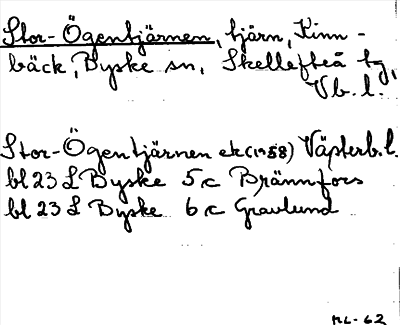 Stor-Ögentjärnen, tjärn, Kinn-
bäck, Byske sn, Skellefteå tg,
Vb. l.
Stor-Ögentjärnen ek (1958) Västerb. l.
bl 23 L Byske 5c Brännfors
bl 23 L Byske 6c Gravlund
RL-62